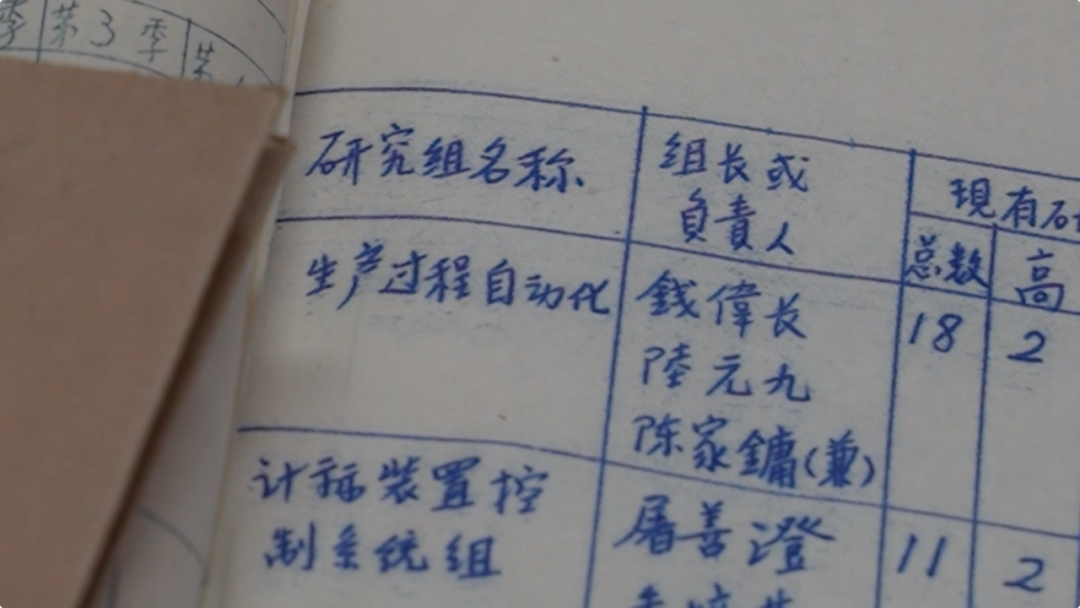 季 第3季 第
研究组名称
组长或
负責人
現有研
总数 高
生产过程自动化
錢偉長 18 2
陸元九
陈家鏞(兼)
计标装置控
制系统组
屠善澄 11 2